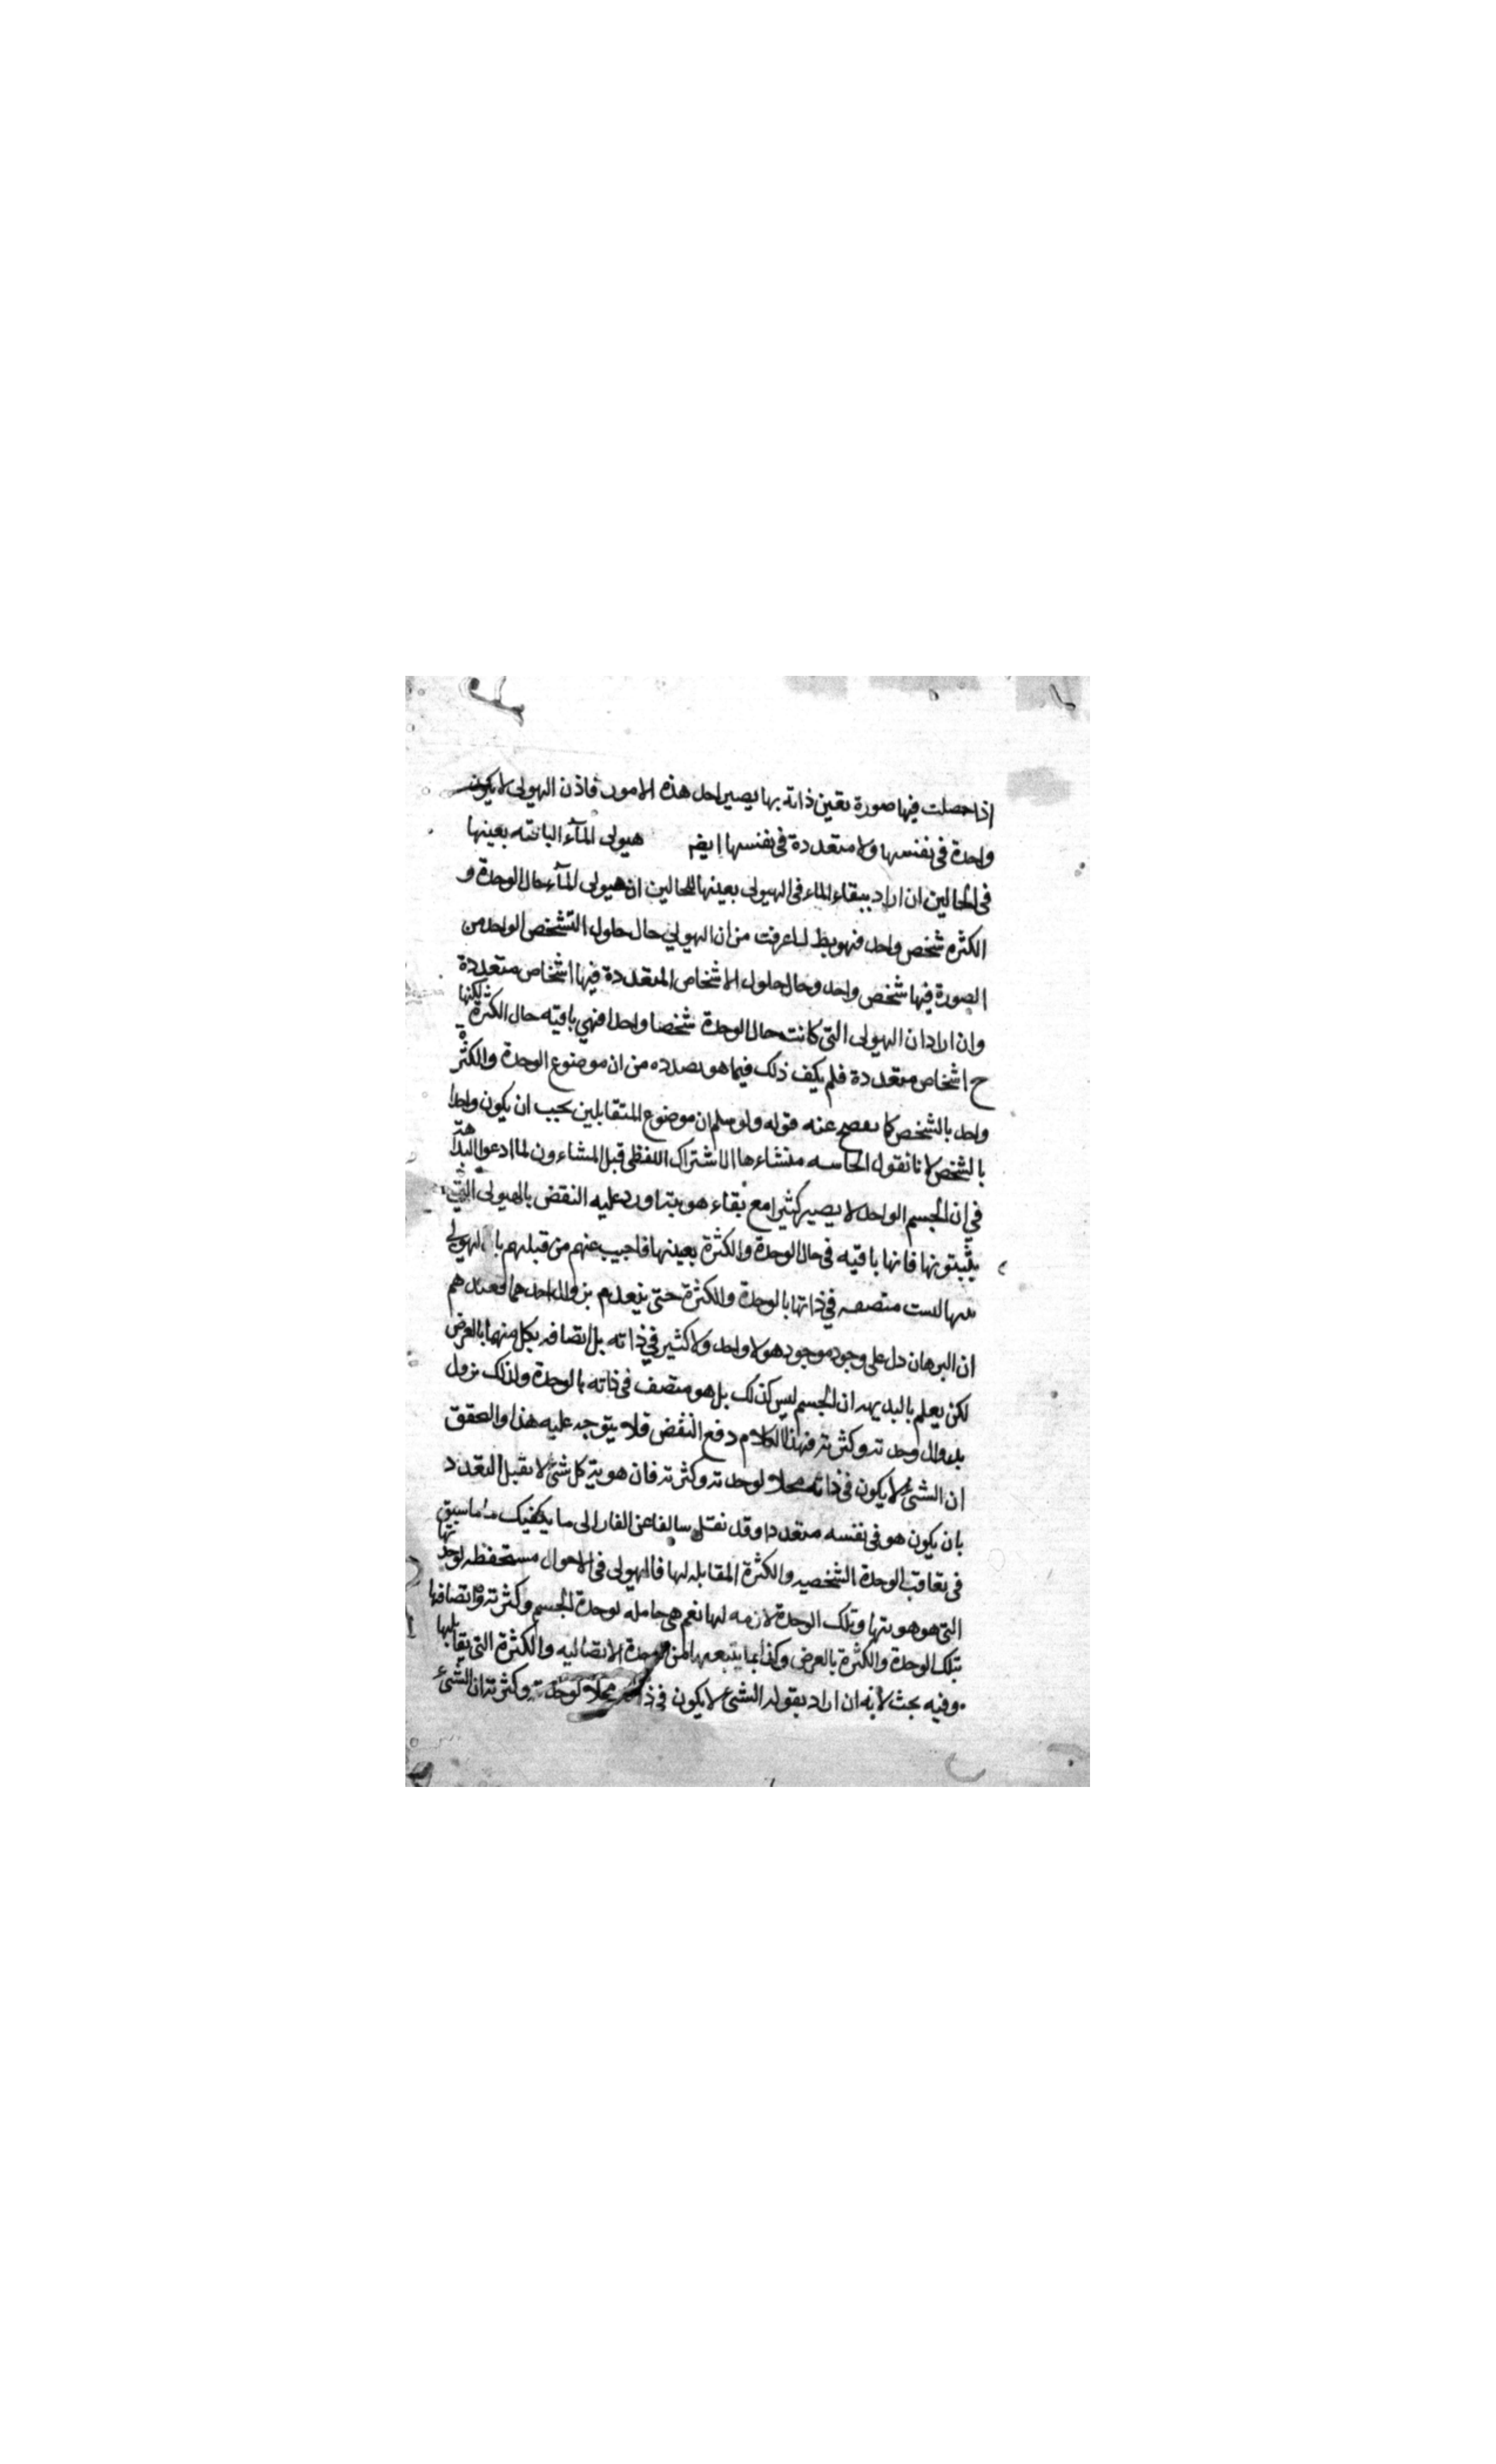 اذا حصلت فيها صورة تعين ذاته بها يصير احد هذه الامور فاذن الهيولى لا يكون
واحدة في نفسها ولا متعددة في نفسها ايضم هيولى المآء الباقيه بعينها
في الحالين ان اراد ببقاء الماء في الهيولى بعينها للحالين ان هيولى المآء حال الوحدة و
الكثره شخص واحد فهو بط لما عرفت من ان الهيولى حال حلول التشخص الواحد من
الصورة فيها شخص واحد وحال حلول الاشخاص المتعددة فيها اشخاص متعددة
وان اراد ان الهيولى التى كانت حال الوحدة شخصا واحدا فهي باقيه حال الكثرة لكنها
ح اشخاص متعددة فلم يكف ذلك فيما هو بصدده من ان موضوع الوحدة والكثرة
واحد بالشخص كما يفصح عنه قوله ولو سلم ان موضوع المتقابلين يجب ان يكون واحدا
بالشخص لانا نقول منشاءها الاشتراك اللفظى قبل المشاءون لما ادعوا البداهة
في ان الجسم الواحد لا يصير كثيرا مع بقاء هويته اورد عليه النقض بالهيولى التى
يثبتونها فانها باقيه في حال الوحدة والكثرة بعينها فاجيب عنهم من قبلهم بان الهيولى
ليست متصفه في ذاتها بالوحدة والكثرة حتى ينعدم بزوال احدهما فعندهم
ان البرهان دل على وجود موجود هو لا واحد ولا كثير في ذاته بل اتصافه بكل منهما بالعرض
لكن يعلم بالبديهه ان الجسم ليس كذلك بل هو متصف في ذاته بالوحدة ولذلك يزول
بزوال وحدته وكثرته فهذا الكلام دفع النقض فلا يتوجه عليه هذا والتحقق
ان الشئ لا يكون في ذاته محلا لوحدته وكثرته فان هوية كل شئ لا يقبل التعدد
بان يكون هو في نفسه متعددا وقد نقل سالفا عن الفارابى ما يكفيك ما سبق
في تعاقب الوحدة الشخصيه والكثرة المقابله لها فالهيولى في الاحوال مستحفظه لوحدتها
التى هو هويتها وتلك الوحدة لازمه لها نعم هي حامله لوحدة الجسم وكثرته واتصافها
بتلك الوحدة والكثرة بالعرض وكذا بما يتبعها من الوحدة الاتصاليه والكثرة التى يقابلها
وفيه بحث لانه ان اراد بقوله الشئ لا يكون في ذاته محلا لوحدته وكثرته ان الشئ